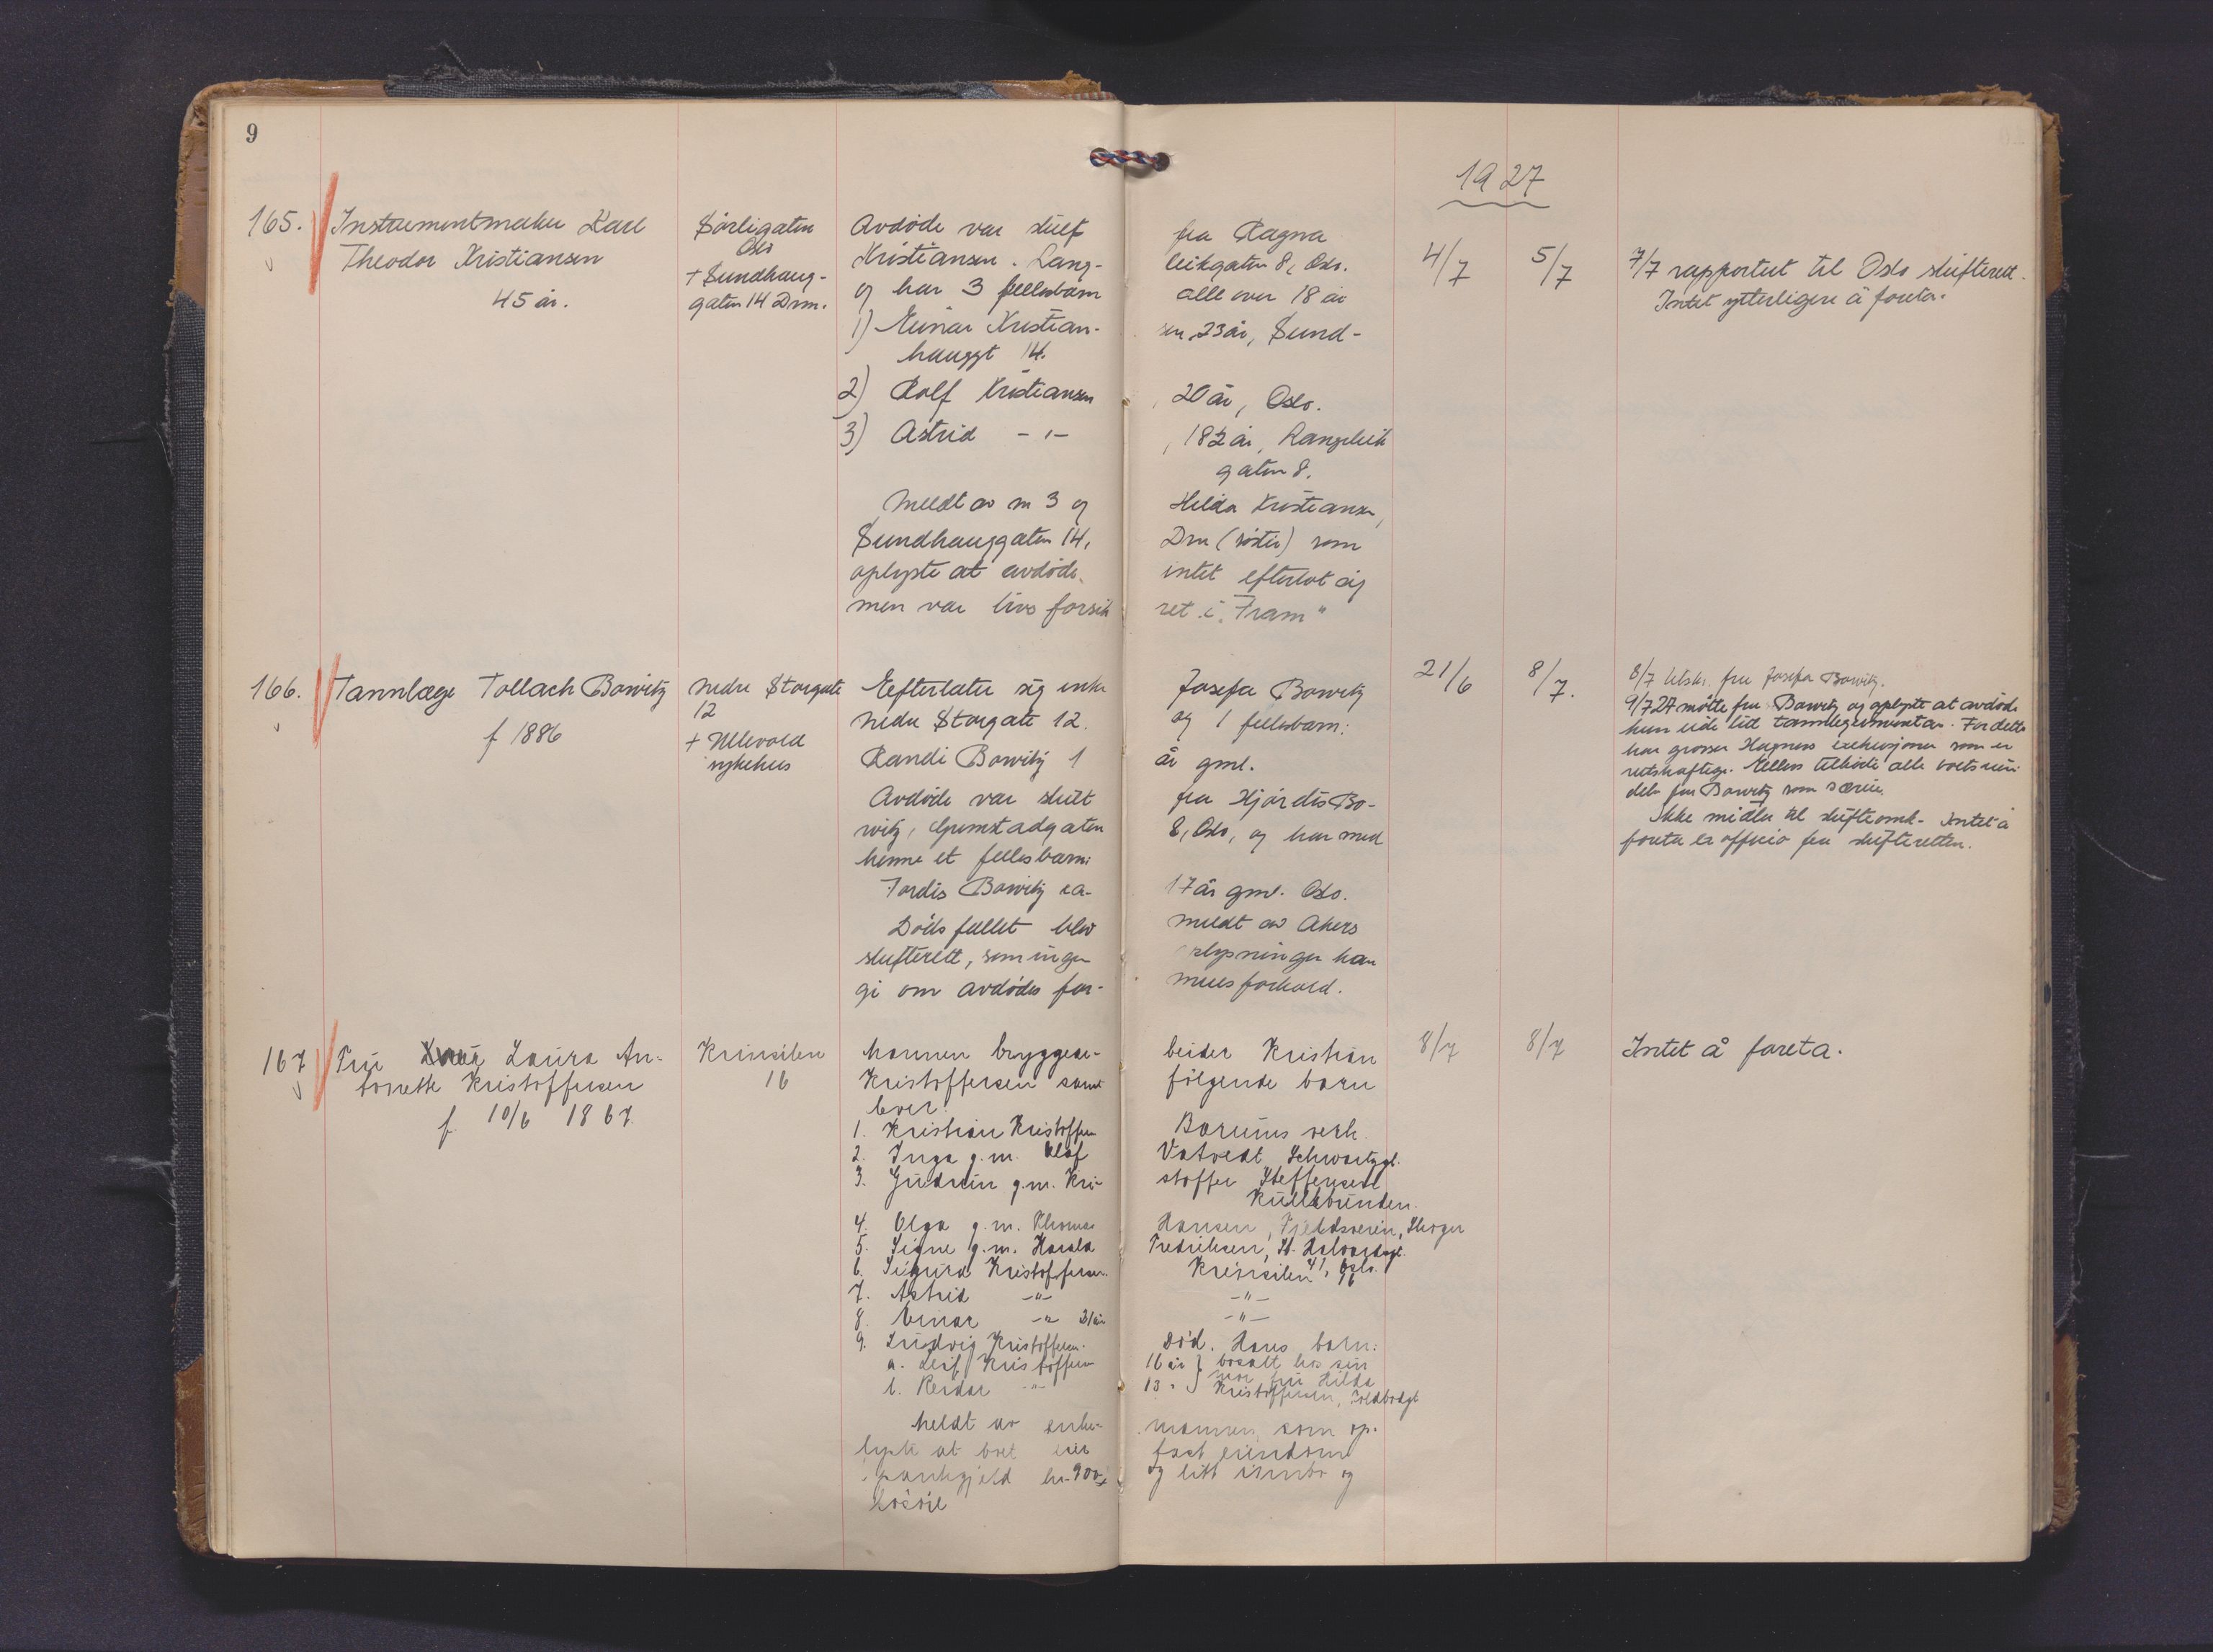 9
1927
165. Instrumentmaker Karl
Theodor Kristiansen
45 år.
Sørligaten
Oslo
+ Sundhaug-
gaten 14 Drm.
Avdøde var skilt fra Ragna
Kristiansen. Lang- leikgaten 8, Oslo.
og har 3 fellesbarn alle over 18 år
1) Einar Kristian- sen, 23 år, Sund-
hauggt 14.
2) Rolf Kristiansen, 20 år, Oslo.
3) Astrid -"-, 18½ år, Langleik
gaten 8.
Meldt av nr 3 og Hilda Kristiansen,
Sundhauggaten 14, Drm (søster) som
oplyste at avdøde intet efterlot sig
men var livsforsik ret i "Fram"
4/7 5/7
7/7 rapportert til Oslo skifterett.
Intet ytterligere å foreta.
166. Tannlæge Tollach Bowitz
f 1886
Nedre Storgate
12
+ Ullevold
sykehus
Eefterlater sig enke Josefa Bowitz
Nedre Storgate 12. og 1 fellesbarn:
Randi Bowitz 1 år gml.
Avdøde var skilt fra Hjørdis Bo-
witz, Grimstadgaten 8, Oslo, og har med
henne et fellesbarn:
Tordis Bowitz ca. 17 år gml. Oslo.
Dødsfallet blev meldt av Akers
skifterett, som ingen oplysninger kan
gi om avdødes for- muesforhold.
21/6 8/7.
8/7 tilskr. fru Josefa Bowitz.
9/7 27 møtte fru Bowitz og oplyste at avdøde
kun eide litt tannlegeinventar. For dette
har grosser Hagness exekusjoner som er
rettskraftige. Ellers tilhørte alle boets eien
deler fru Bowitz som særeie.
Ikke midler til skifteomk. Intet å
foreta ex officio fra skifteretten.
167 Fru Laura An-
tonette Kristoffersen
f. 10/6 1867.
Kreinsilen
16
Mannen bryggear- beider Kristian
Kristoffersen samt følgende barn
lever:
1. Kristian Kristoffersen Borums verk.
2. Inga g.m. Olaf Vatvedt Schwartzgt.
3. Gudrun g.m. Kri- stoffer Steffensen
Kullebunden.
4. Olga g.m. Thomas Hansen, Fjeldsveien, Skoger
5. Signe g.m. Harald Fredriksen, St. Halvardsgt.
41, Oslo.
6. Sigurd Kristoffersen. Kreinsilen 16
7. Astrid -"- -"-
8. Einar -"- 21 år -"-
9. Ludvig Kristoffersen. Død. Hans barn:
a. Leif Kristoffersen 16 år } bosatt hos sin
b. Reidar -"- 13 " } mor fru Hilda
Kristoffersen, Toldbodgt
Meldt av enke- mannen, som op-
lyste at boet eier fast eiendom
pantegjeld kr. 900,- og litt innbo og
løsøre
8/7 8/7
Intet å foreta.